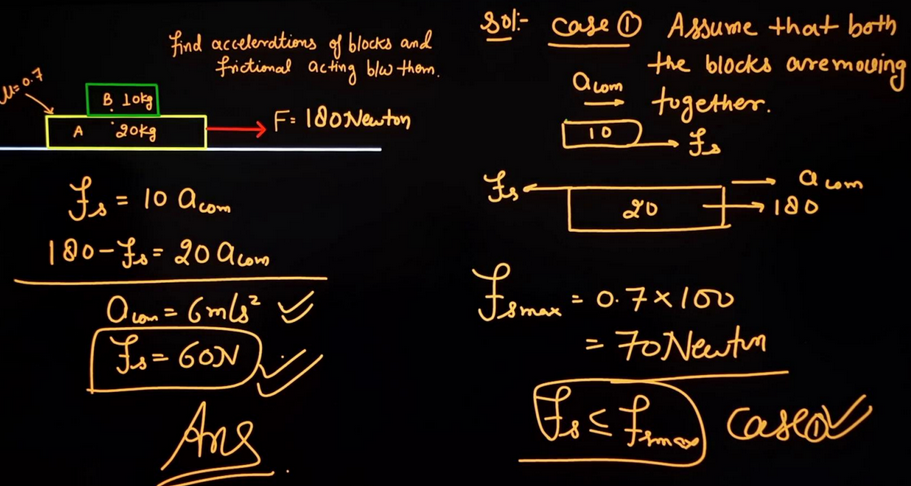 find accelerations of blocks and
frictional acting b/w them.
μ=0.7
B 10kg
A 20kg
F = 180 Newton
fs = 10 acom
180 - fs = 20 acom
acom = 6m/s²
fs = 60N
Ans
Sol:- Case ① Assume that both
the blocks are moving
together.
acom
10
fs
fs
acom
20
180
fsmax = 0.7 × 100
= 70 Newton
fs ≤ fsmax Case ①